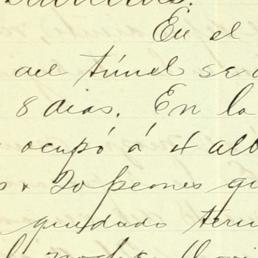 En el
del túnel se
8 dias. En la
ocupó á 4 alb
s x 20 peones qu
quedado term